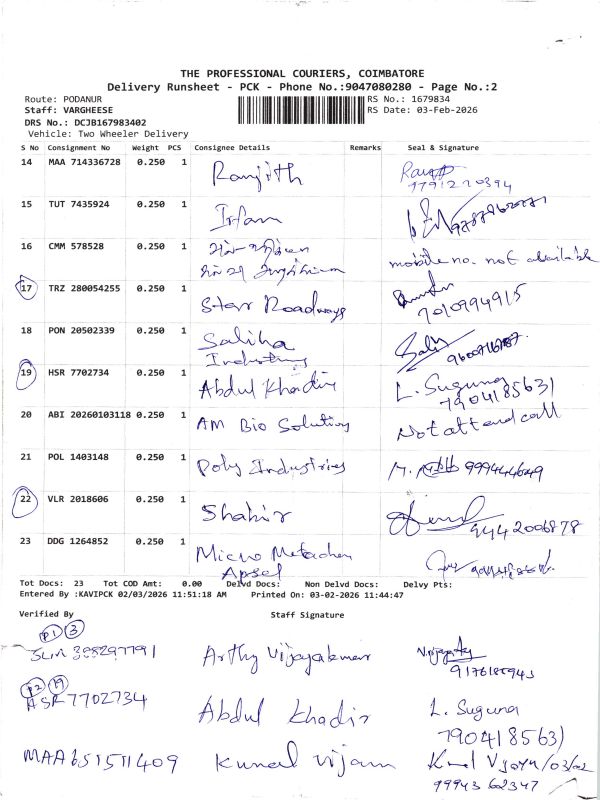 THE PROFESSIONAL COURIERS, COIMBATORE
Delivery Runsheet - PCK - Phone No.:9047080280 - Page No.:2
Route: PODANUR
RS No.: 1679834
Staff: VARGHEESE
RS Date: 03-Feb-2026
DRS No.: DCJB167983402
Vehicle: Two Wheeler Delivery
S No Consignment No Weight PCS Consignee Details Remarks Seal & Signature
14 MAA 714336728 0.250 1 Ranjith
7791220394
15 TUT 7435924 0.250 1 Irfan
16 CMM 578528 0.250 1 mobile no. not available
17 TRZ 280054255 0.250 1 Star Roadways
7010994915
18 PON 20502339 0.250 1 Saliha
Industries
19 HSR 7702734 0.250 1 Abdul Khadir L. Suguna
7904185631
20 ABI 20260103118 0.250 1 AM Bio Solutions Not attend call
21 POL 1403148 0.250 1 Poly Industries
22 VLR 2018606 0.250 1 Shahir
9442006878
23 DDG 1264852 0.250 1 Micro
Tot Docs: 23 Tot COD Amt: 0.00 Delvd Docs: Non Delvd Docs: Delvy Pts:
Entered By :KAVIPCK 02/03/2026 11:51:18 AM Printed On: 03-02-2026 11:44:47
Verified By Staff Signature
P1 3
Arthy Vijayakumar
P2 19
HSR 7702734 Abdul Khadir L. Suguna
7904185631
MAA 651511409 Kunal Vijam
9994362347